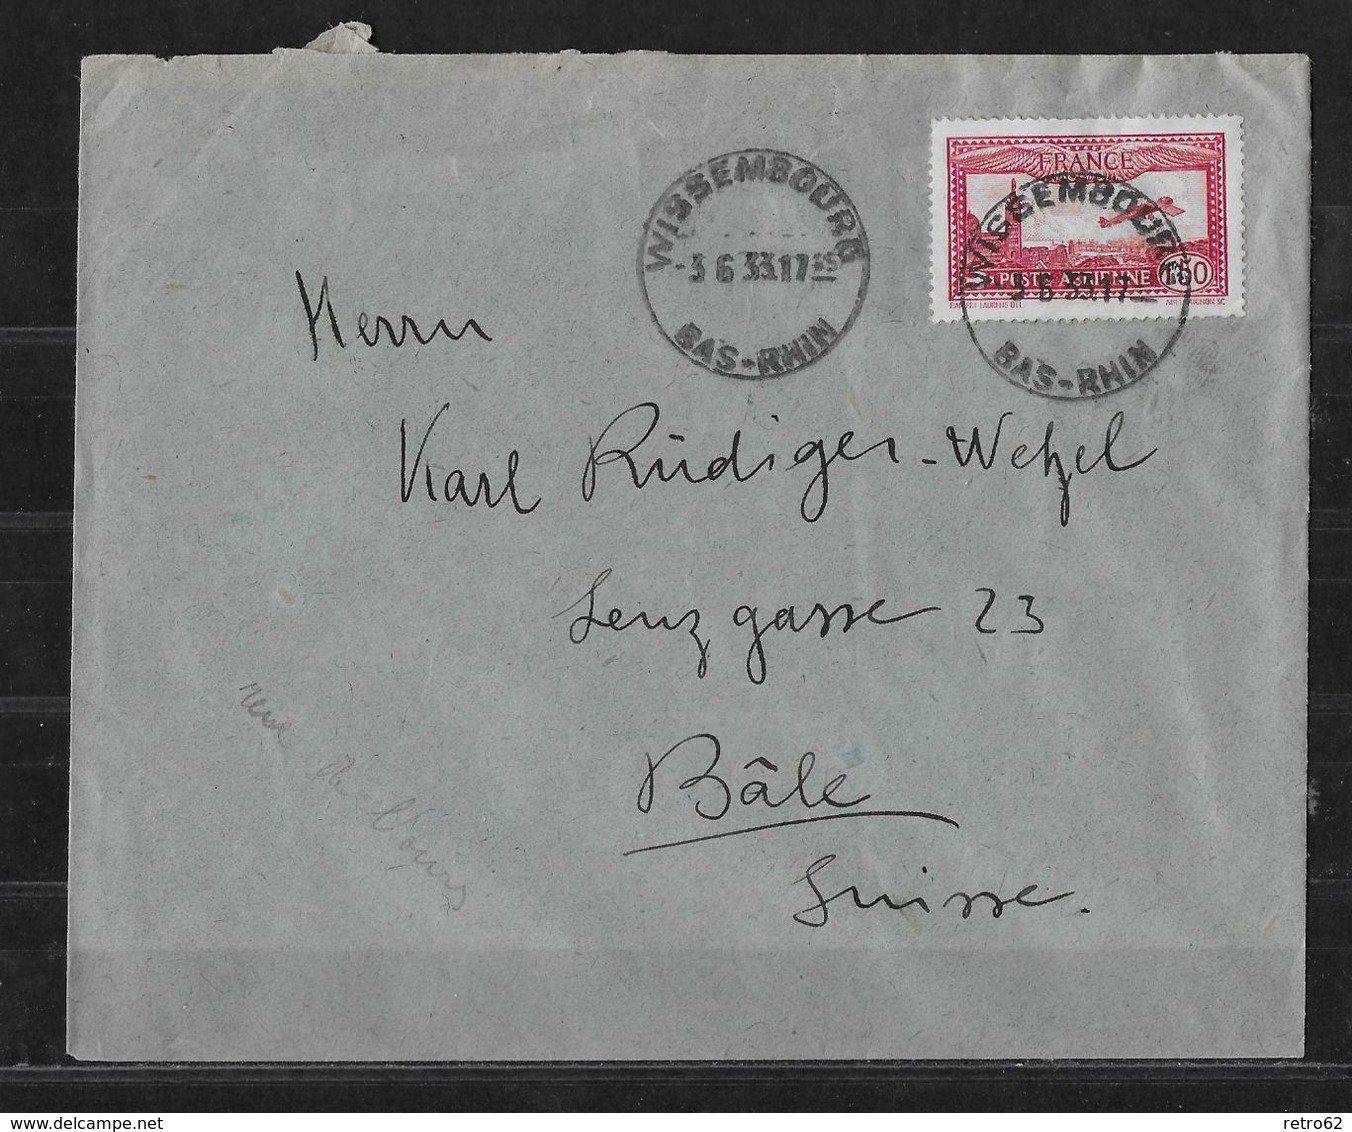 FRANCE
POSTE AERIENNE 1F50
WISSEMBOURG
-3 6 33.17 35
BAS-RHIN
WISSEMBOURG
3 6 33.17
BAS-RHIN
Herrn
Karl Rüdiger-Wetzel
Lenzgasse 23
Bâle
Suisse.
www.delcampe.net
retro62